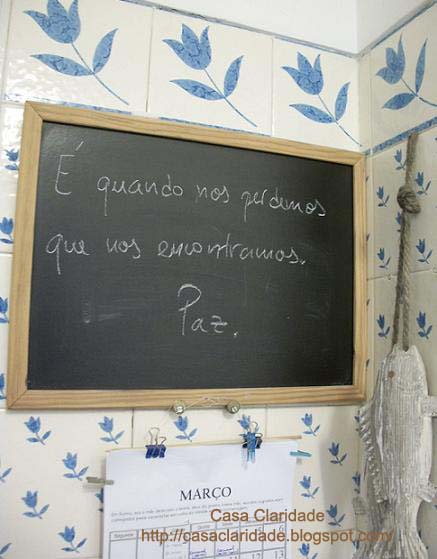 É quando nos perdemos
que nos encontramos.
Paz.
MARÇO
Casa Claridade
http://casaclaridade.blogspot.com/